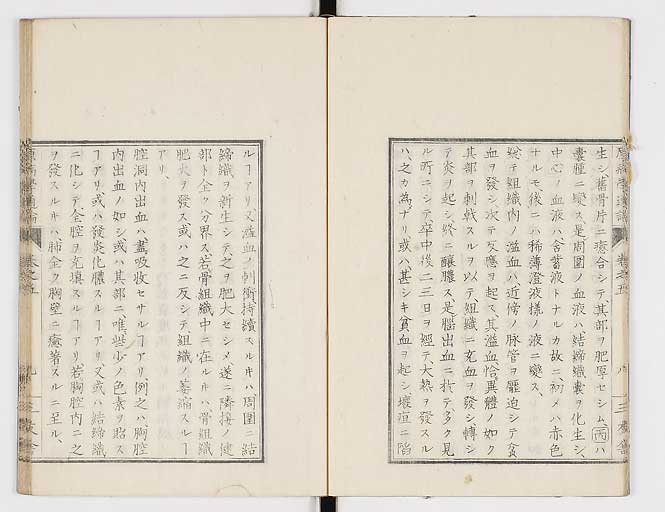 生シ、舊骨片ニ癒合シテ其部ヲ肥厚セシム丙ハ
囊腫ニ變ス、是周圍ノ血液ハ結締織囊ヲ化生シ、
中心ノ血液ハ含蓄液トナルカ故ニ、初メハ赤色
ナルモ後ニハ稀薄澄液様ノ液ニ變ス、
総テ組織内ノ溢血ハ近傍ノ脉管ヲ壓迫シテ貧
血ヲ發シ、次テ反應ヲ起ス、其溢血恰異體ノ如ク
其部ヲ刺戟スルヲ以テ組織ニ充血ヲ發シ轉シ
テ炎ヲ起シ、終ニ釀膿ス、是腦出血ニ於テ多ク見
ル所ニシテ卒中後二三日ヲ經テ、大熱ヲ發スル
ハ、之カ爲ナリ、或ハ甚シキ貧血ヲ起シ、壞疽ニ陷
ルヿアリ、又溢血ノ刺衝、持續スルキハ周圍ニ結
締織ヲ新生シテ之ヲ肥大セシメ、遂ニ隣接ノ健
部ト全ク分界ス、若骨組織中ニ在ルキハ骨組織
肥大ヲ發ス、或ハ之ニ反シテ組織ノ萎縮スルヿ
アリ、
腔洞内出血ハ盡吸收セサルヿアリ、例之ハ胸腔
内出血ノ如シ、或ハ其部ニ唯些少ノ色素ヲ貽ス
ヿアリ、或ハ發炎化膿スルヿアリ、又或ハ結締織
ニ化シテ全腔ヲ充填スルヿアリ、若胸腔内ニ之
ヲ發スルキハ肺全ク胸壁ニ癒著スルニ至ル、
卷之五